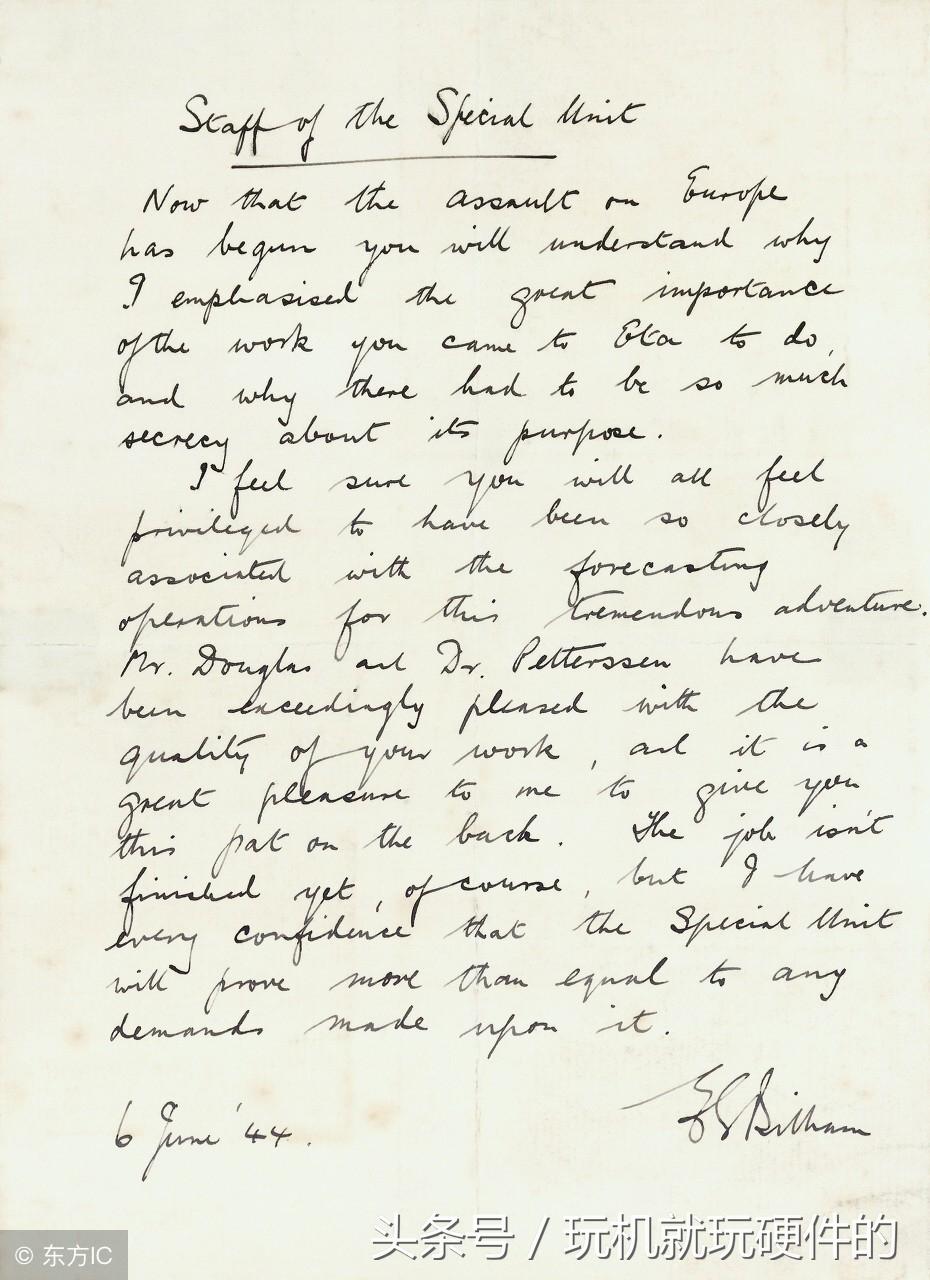 Staff of the Special Unit
Now that the assault on Europe
has begun you will understand why
I emphasised the great importance
of the work you came to Eta to do,
and why there had to be so much
secrecy about its purpose.
I feel sure you will all feel
privileged to have been so closely
associated with the forecasting
operations for this tremendous adventure.
Mr. Douglas and Dr. Petterssen have
been exceedingly pleased with the
quality of your work, and it is a
great pleasure to me to give you
this pat on the back. The job isn't
finished yet, of course, but I have
every confidence that the Special Unit
will prove more than equal to any
demands made upon it.
6 June '44.
© 东方IC
头条号 / 玩机就玩硬件的